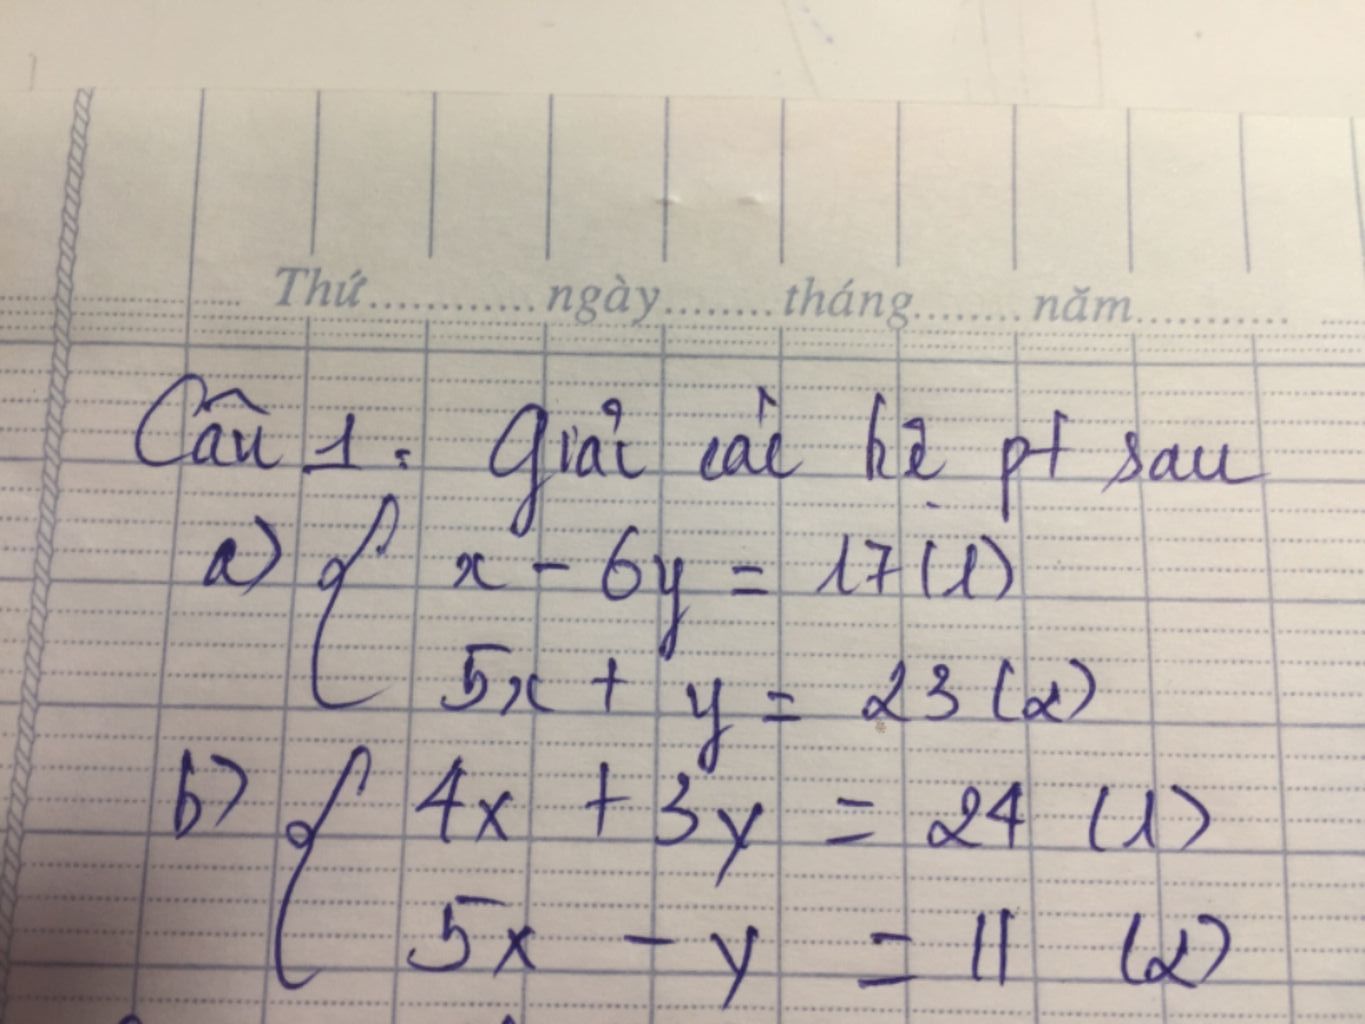 Thứ............ngày........tháng........năm...........
Câu 1. Giải các hệ pt sau
a) { x - 6y = 17 (1)
5x + y = 23 (2)
b) { 4x + 3y = 24 (1)
5x - y = 11 (2)